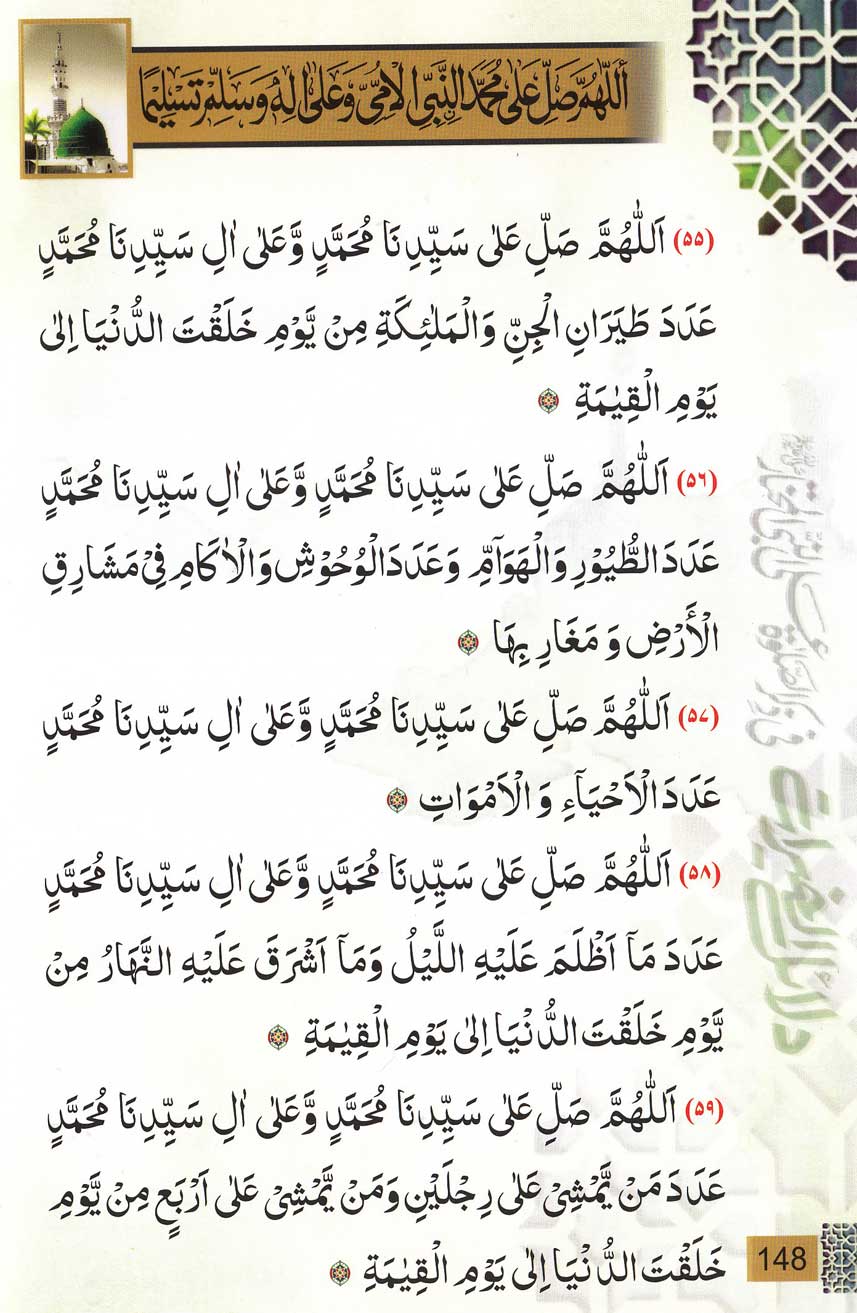 اَللّٰهُمَّ صَلِّ عَلٰى مُحَمَّدِ ِۨالنَّبِيِّ الْاُمِّيِّ وَعَلٰى اٰلِهٖ وَسَلِّمْ تَسْلِيْمًا
(۵۵) اَللّٰهُمَّ صَلِّ عَلٰى سَيِّدِنَا مُحَمَّدٍ وَّعَلٰى اٰلِ سَيِّدِنَا مُحَمَّدٍ
عَدَدَ طَيَرَانِ الْجِنِّ وَالْمَلٰئِكَةِ مِنْ يَّوْمِ خَلَقْتَ الدُّنْيَا اِلٰى
يَوْمِ الْقِيٰمَةِ
(۵۶) اَللّٰهُمَّ صَلِّ عَلٰى سَيِّدِنَا مُحَمَّدٍ وَّعَلٰى اٰلِ سَيِّدِنَا مُحَمَّدٍ
عَدَدَ الطُّيُوْرِ وَالْهَوَآمِّ وَعَدَدَ الْوُحُوْشِ وَالْاٰكَامِ فِيْ مَشَارِقِ
الْأَرْضِ وَمَغَارِبِهَا
(۵۷) اَللّٰهُمَّ صَلِّ عَلٰى سَيِّدِنَا مُحَمَّدٍ وَّعَلٰى اٰلِ سَيِّدِنَا مُحَمَّدٍ
عَدَدَ الْاَحْيَآءِ وَالْاَمْوَاتِ
(۵۸) اَللّٰهُمَّ صَلِّ عَلٰى سَيِّدِنَا مُحَمَّدٍ وَّعَلٰى اٰلِ سَيِّدِنَا مُحَمَّدٍ
عَدَدَ مَآ اَظْلَمَ عَلَيْهِ اللَّيْلُ وَمَآ اَشْرَقَ عَلَيْهِ النَّهَارُ مِنْ
يَّوْمِ خَلَقْتَ الدُّنْيَا اِلٰى يَوْمِ الْقِيٰمَةِ
(۵۹) اَللّٰهُمَّ صَلِّ عَلٰى سَيِّدِنَا مُحَمَّدٍ وَّعَلٰى اٰلِ سَيِّدِنَا مُحَمَّدٍ
عَدَدَ مَنْ يَّمْشِيْ عَلٰى رِجْلَيْنِ وَمَنْ يَّمْشِيْ عَلٰى اَرْبَعٍ مِنْ يَّوْمِ
خَلَقْتَ الدُّنْيَا اِلٰى يَوْمِ الْقِيٰمَةِ
دلائل الخيرات
148